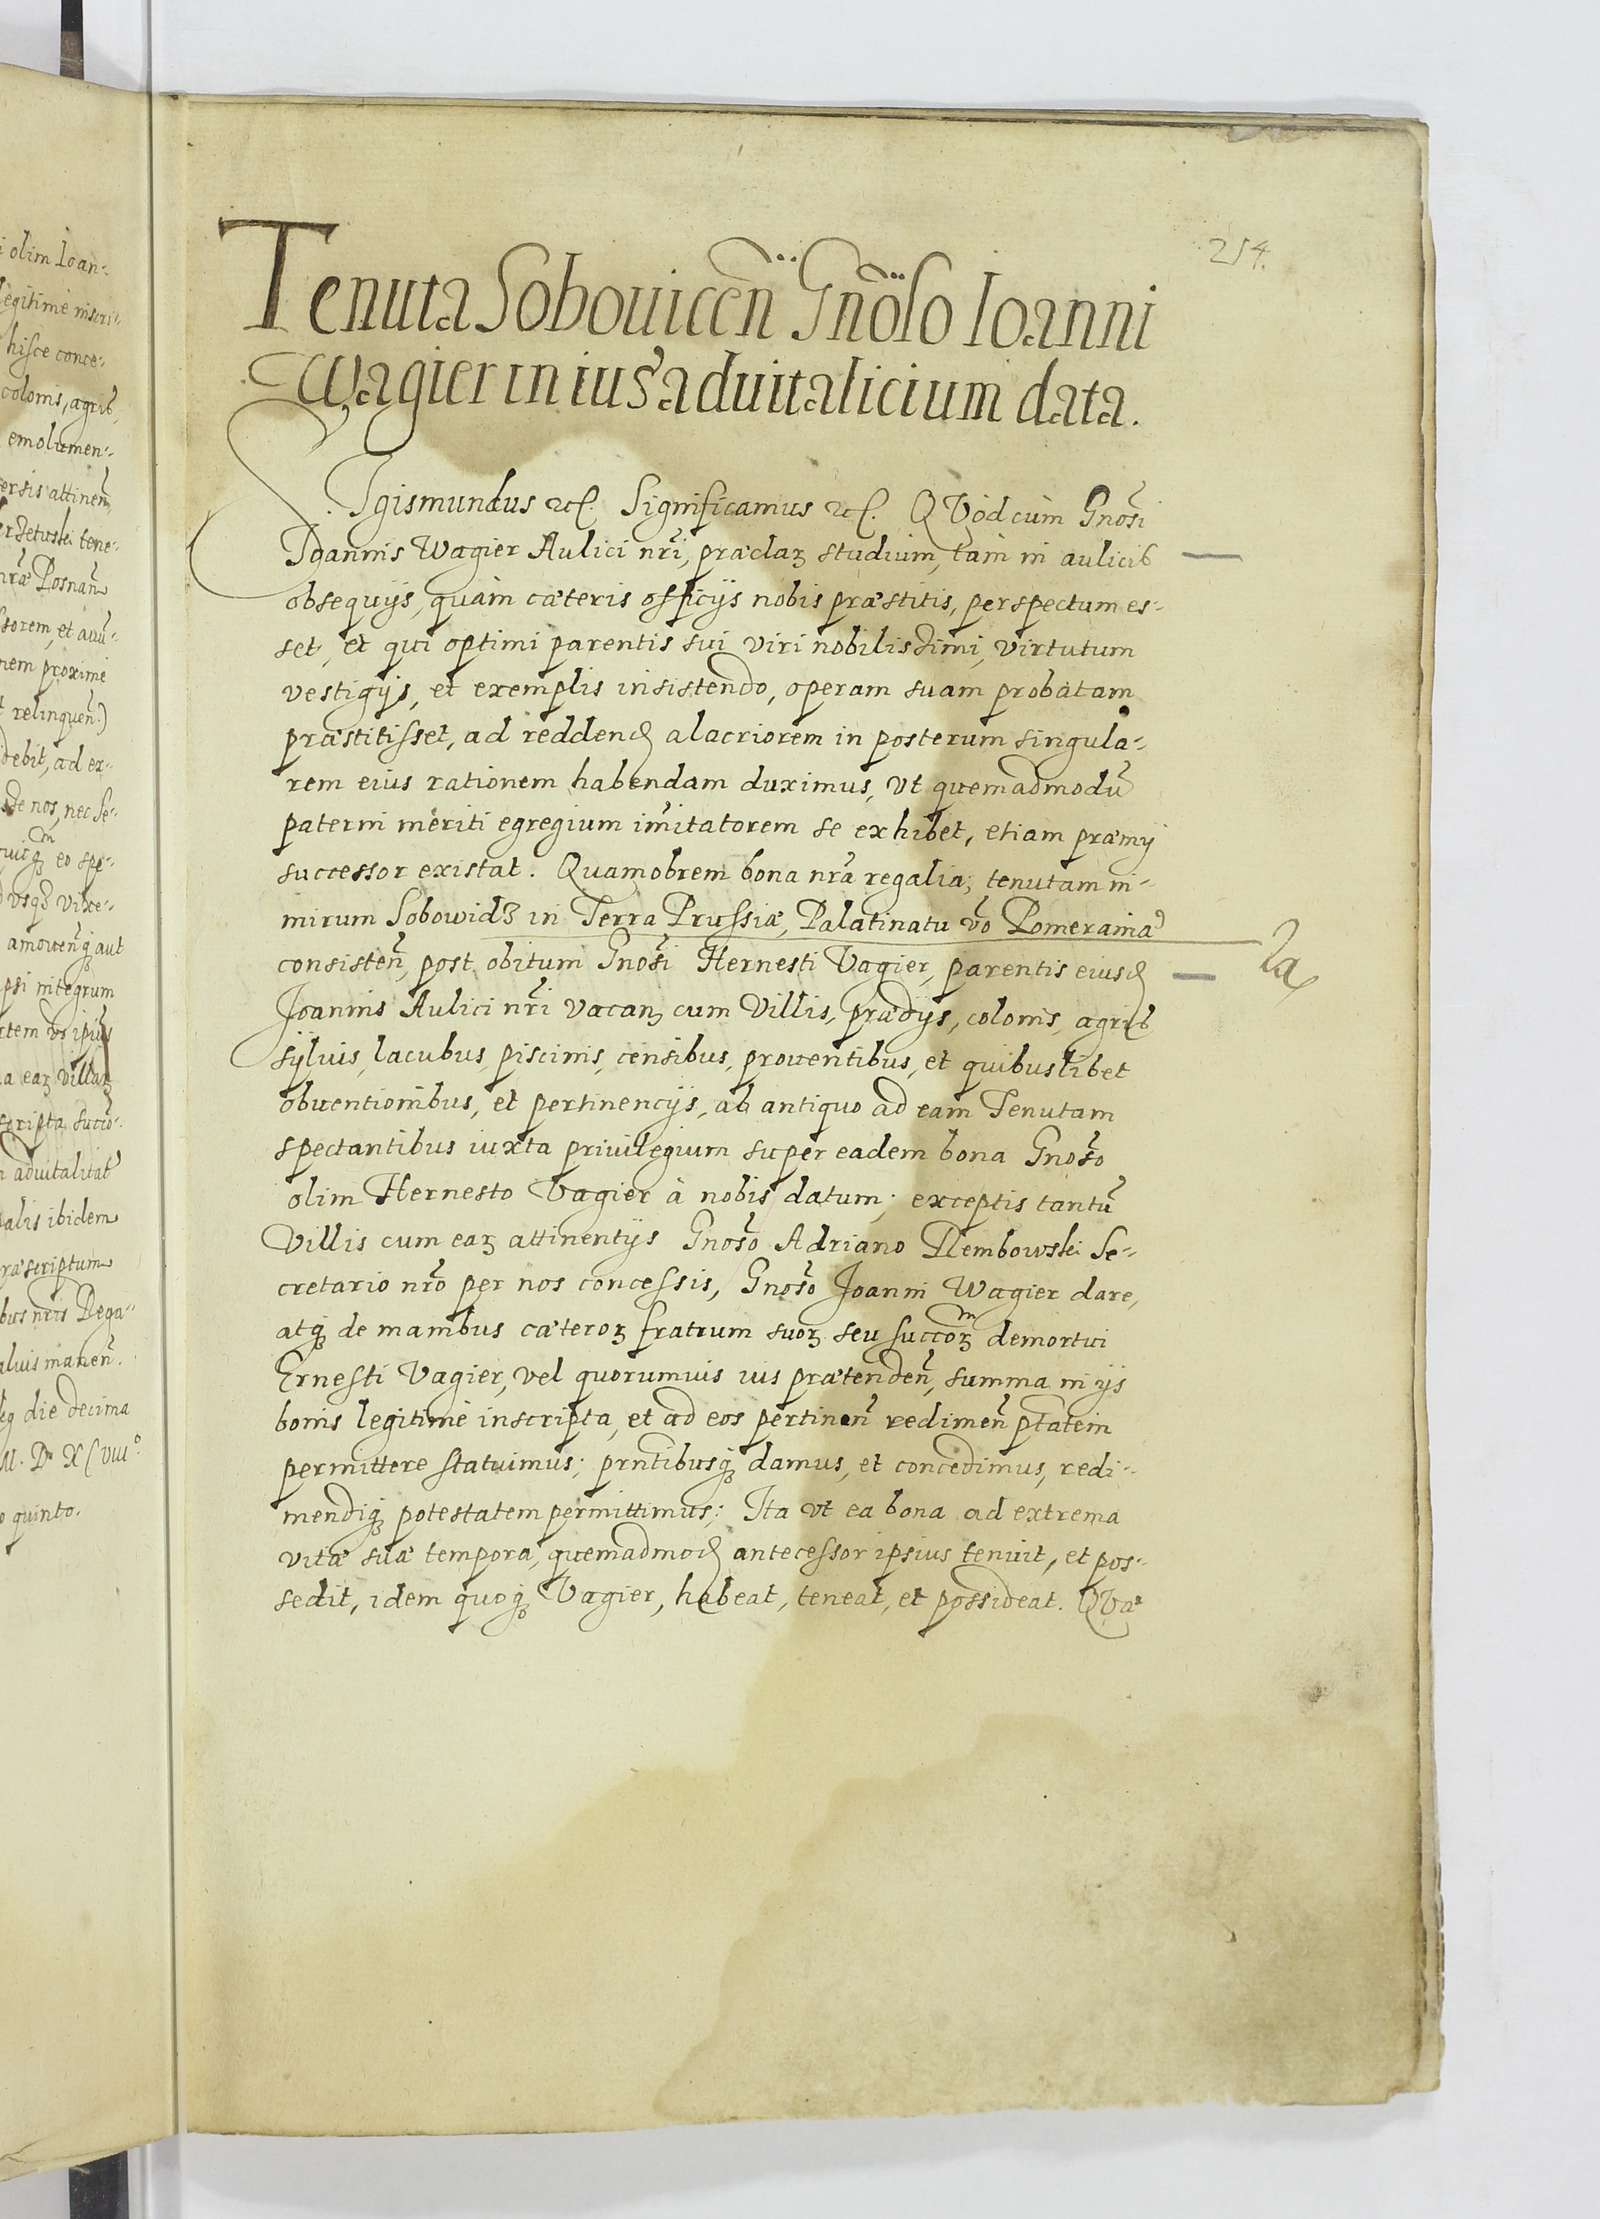 i olim Ioan-
legitimè inscri-
hisce conce-
colonis, agrib,
emolumen-
ersis attinen
tene-
nrae Posnan
ssorem, et
nem proximè
t relinquen)
debit, ad ex-
de nos, nec Se-
eo spe-
vsq vice-
aut
psi integrum
rtem
a ear villar
scripta
advitalitat
alis ibidem
raescriptum
bus nris Rega-
alvis manen.
die decima
M. D. XCVIII°
o quinto.
254.
Tenuta Sobouicen Gnoso Ioanni
Wagier in ius aduitalicium data.
Sigismundus etc. Significamus etc. QVòd cùm Gnosi
Ioannis Wagier Aulici nri, praeclar studium, tàm in aulicib
obsequijs, quàm caeteris officijs nobis praestitis, perspectum es-
set, et qui optimi parentis sui viri nobilissimi, virtutum
vestigijs, et exemplis insistendo, operam suam probatam
praestitisset, ad reddend alacriorem in posterum singula-
rem eius rationem habendam duximus, vt quemadmodu
paterni meriti egregium imitatorem se exhibet, etiam praemij
successor existat. Quamobrem bona nra regalia, tenutam ni-
mirum Sobowidz in Terra Prussiae, Palatinatu vo Pomeraniae
consisten, post obitum Gnosi Hernesti Vagier, parentis eiusd
Joannis Aulici nri vacan cum Villis, praedijs, colonis, agrib
syluis, lacubus, piscinis, censibus, prouentibus, et quibuslibet
obuentionibus, et pertinencijs, ab antiquo ad eam Tenutam
spectantibus iuxta priuilegium super eadem bona Gnoso
olim Hernesto Vagier à nobis datum; exceptis tantu
Villis cum ear attinentijs Gnoso Adriano Rembowski Se-
cretario nro per nos concessis, Gnoso Joanni Wagier dare,
atq de manibus caeteror fratrum suor seu succor demortui
Ernesti Vagier, vel quorumuis ius praetenden, summa in ijs
bonis legitimè inscripta, et ad eos pertinen redimen ptatem
permittere statuimus; prntibusq damus, et concedimus, redi-
mendiq potestatem permittimus; Ita vt ea bona ad extrema
vitae suae tempora, quemadmod antecessor ipsius tenuit, et pos-
sedit, idem quoq Vagier, habeat, teneat, et possideat. QVae